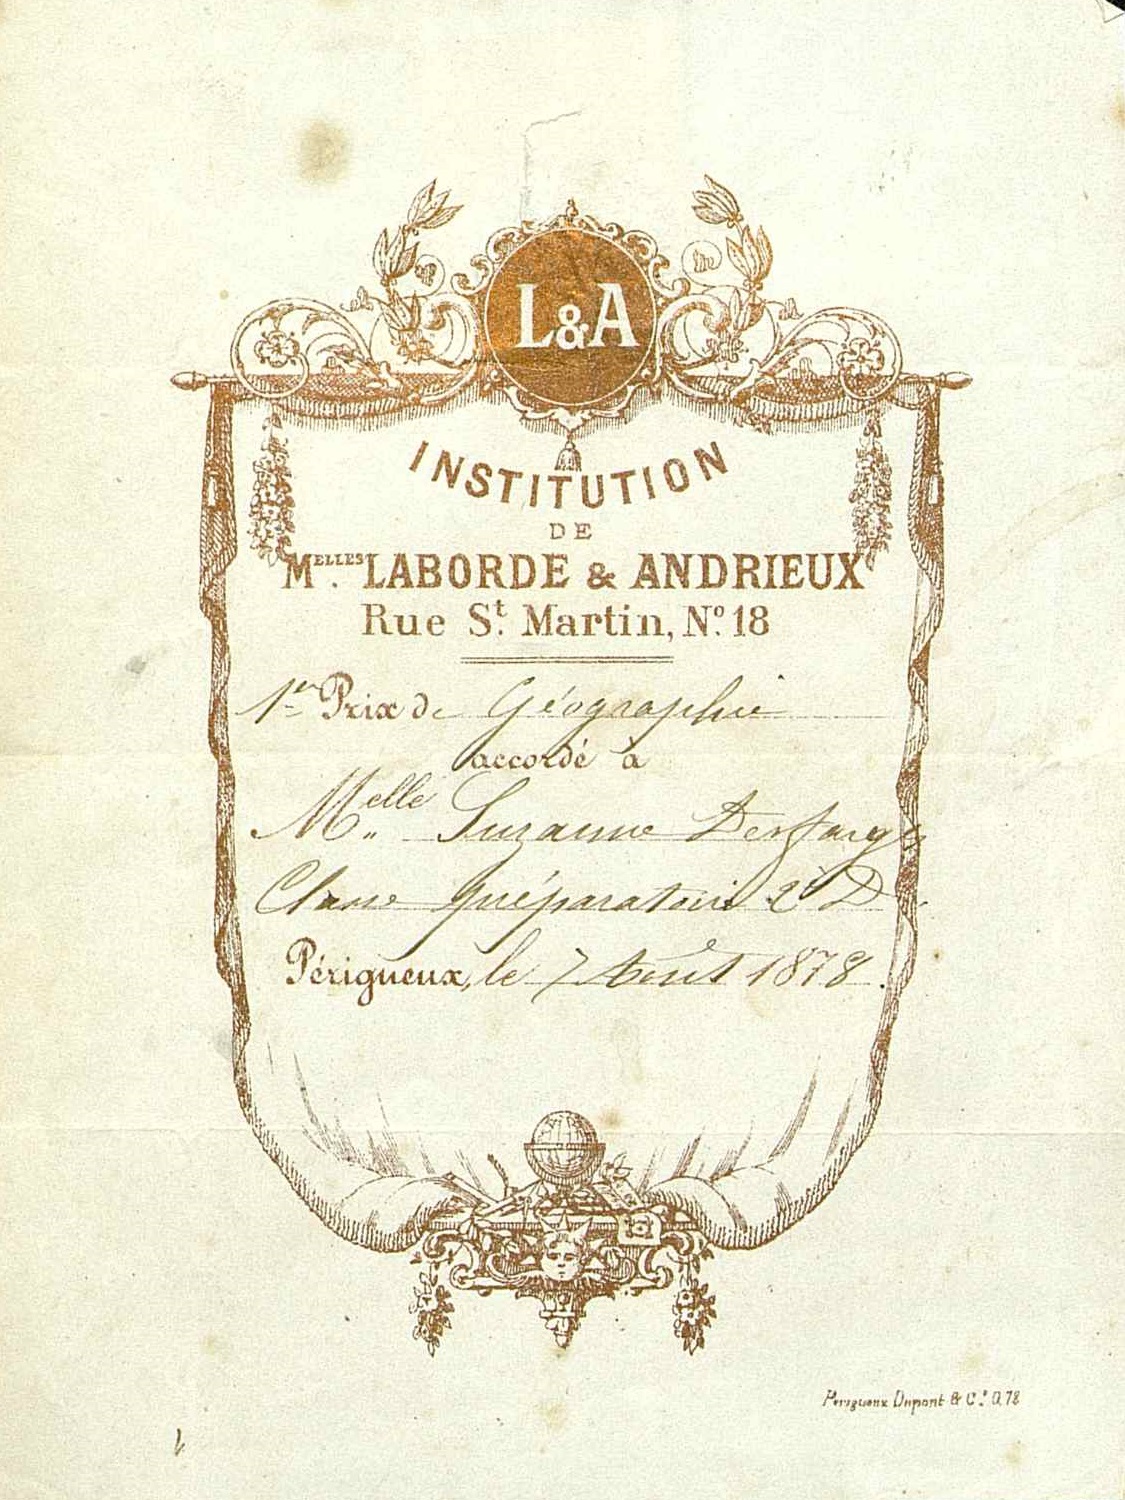 L&A
INSTITUTION
DE
MELLES LABORDE & ANDRIEUX
Rue St. Martin, No. 18
1er Prix de Géographie
accordé à
Melle Suzanne Desfarges
Classe préparatoire 2e D.
Périgueux, le 7 Août 1878.
Périgueux Dupont & Ce. 0,78